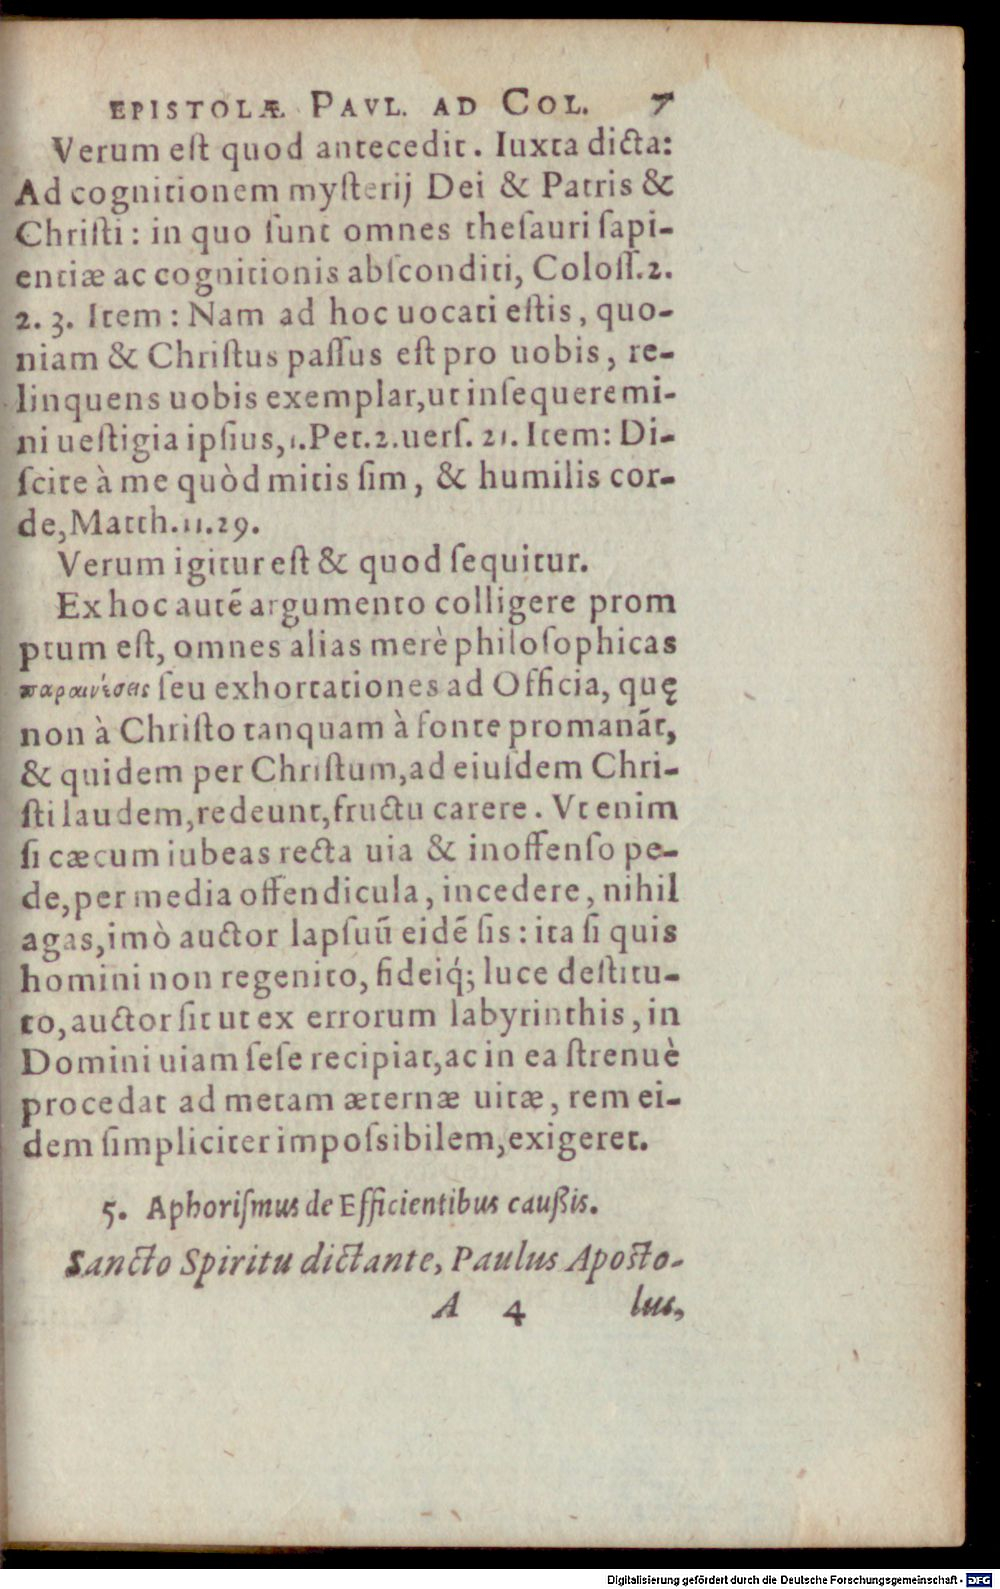 EPISTOLÆ PAVL. AD COL. 7
Verum eſt quod antecedit. Iuxta dicta:
Ad cognitionem myſterij Dei & Patris &
Chriſti: in quo ſunt omnes theſauri ſapi-
entiæ ac cognitionis abſconditi, Coloſſ.2.
2. 3. Item: Nam ad hoc uocati eſtis, quo-
niam & Chriſtus paſſus eſt pro uobis, re-
linquens uobis exemplar, ut inſequeremi-
ni ueſtigia ipſius, 1.Pet.2.uerſ. 21. Item: Di-
ſcite à me quòd mitis ſim, & humilis cor-
de, Matth.11.29.
Verum igitur eſt & quod ſequitur.
Ex hoc autē argumento colligere prom
ptum eſt, omnes alias merè philoſophicas
παραινέσεις ſeu exhortationes ad Officia, quę
non à Chriſto tanquam à fonte promanāt,
& quidem per Chriſtum, ad eiuſdem Chri-
ſti laudem, redeunt, fructu carere. Vt enim
ſi cæcum iubeas recta uia & inoffenſo pe-
de, per media offendicula, incedere, nihil
agas, imò auctor lapſuū eidē ſis: ita ſi quis
homini non regenito, fideiq́; luce deſtitu-
to, auctor ſit ut ex errorum labyrinthis, in
Domini uiam ſeſe recipiat, ac in ea ſtrenuè
procedat ad metam æternæ uitæ, rem ei-
dem ſimpliciter impoſsibilem, exigeret.
5. Aphoriſmus de Efficientibus cauſsis.
Sancto Spiritu dictante, Paulus Apoſto-
A 4 lus,
Digitalisierung gefördert durch die Deutsche Forschungsgemeinschaft - DFG